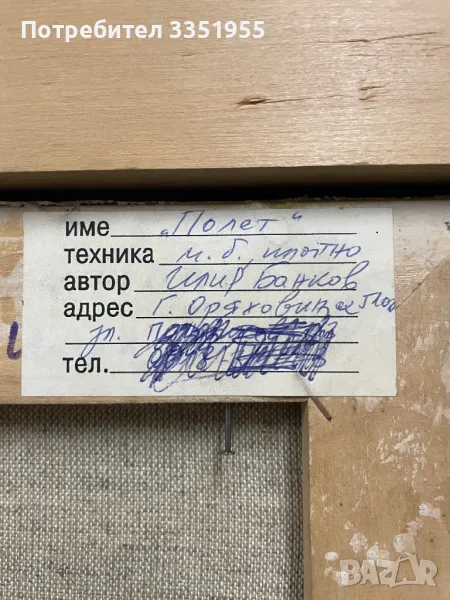 Потребител 3351955
име „Полет“
техника м. б., платно
автор Илия Банков
адрес Г. Оряховица 5100
ул.
тел.
BAZAR